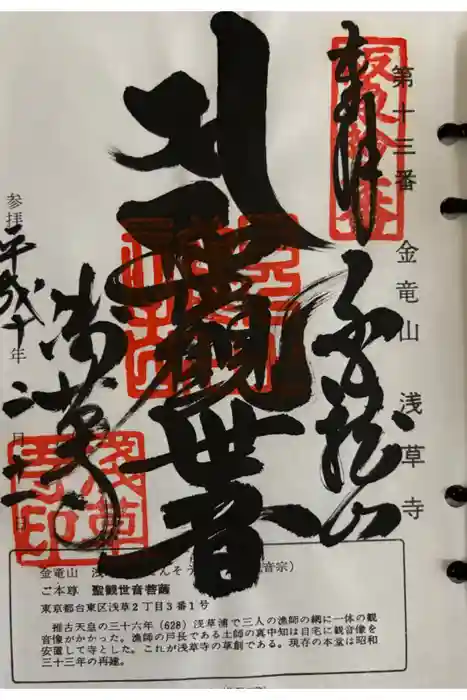 第十三番 金竜山 浅草寺
奉拝
金龍山
聖観世音
浅草寺
参拝 平成十年二月十一日
金竜山
ご本尊 聖観世音菩薩
東京都台東区浅草2丁目3番1号
推古天皇の三十六年(628)浅草浦で三人の漁師の網に一体の観
音像がかかった。漁師の戸長である土師の真中知は自宅に観音像を
安置して寺とした。これが浅草寺の草創である。現存の本堂は昭和
三十三年の再建。